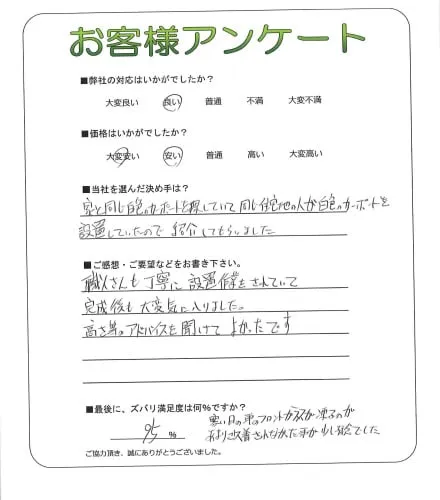 お客様アンケート
■弊社の対応はいかがでしたか？
大変良い 良い 普通 不満 大変不満
■価格はいかがでしたか？
大変安い 安い 普通 高い 大変高い
■当社を選んだ決め手は？
家と同じ白色のカーポートを探していて同じ住宅地の人が白色のカーポートを
設置していたので紹介してもらいました
■ご感想・ご要望などをお書き下さい。
職人さんも丁寧に設置作業をされていて
完成後も大変気に入りました。
高さ等のアドバイスを聞けてよかったです
■最後に、ズバリ満足度は何％ですか？
95 ％
寒い日の車のフロントガラスが凍るのが
あまり改善されなかった事が少し残念でした
ご協力頂き、誠にありがとうございました。